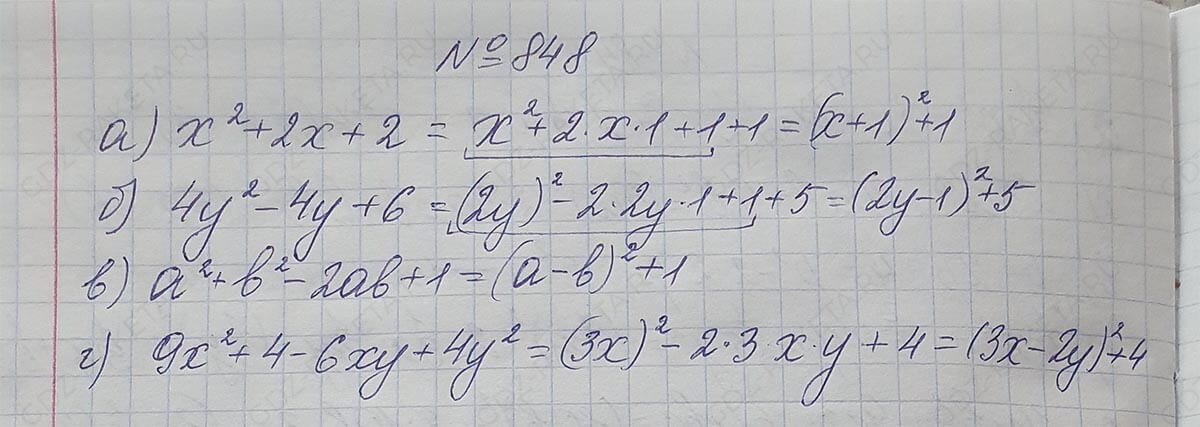 № 848
а) x² + 2x + 2 = x² + 2·x·1 + 1 + 1 = (x+1)² + 1
б) 4y² - 4y + 6 = (2y)² - 2·2y·1 + 1 + 5 = (2y-1)² + 5
в) a² + b² - 2ab + 1 = (a-b)² + 1
г) 9x² + 4 - 6xy + 4y² = (3x)² - 2·3·x·y + 4 = (3x-2y)² + 4